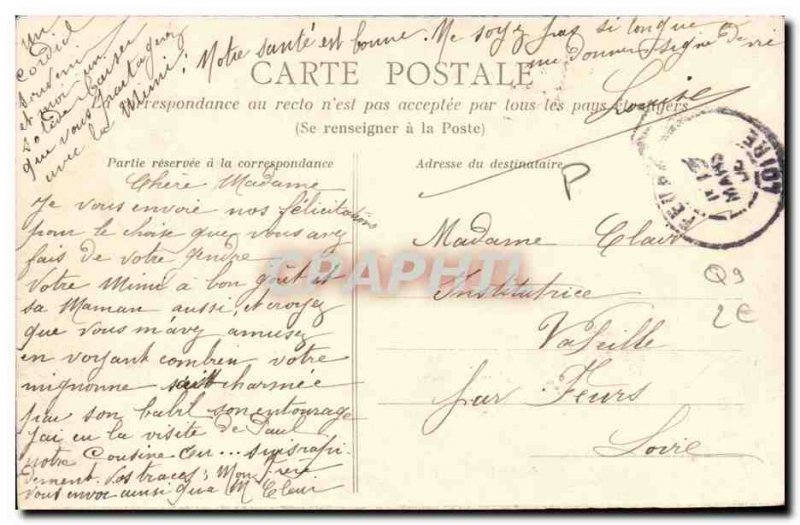 Un
cordial
souvenir
et pour un
baiser
que vous partagerez
avec la Mimi;
Notre santé est bonne. Ne soyez pas si longue
me donner signe de vie
Louise
CARTE POSTALE
correspondance au recto n'est pas acceptée par tous les pays étrangers
(Se renseigner à la Poste)
Partie réservée à la correspondance
Chère Madame
Je vous envoie nos félicitations
pour le choix que vous avez
fais de votre gendre
Votre Mimi à bon goût et
sa Maman aussi, et croyez
que vous m'avez amusez
en voyant combien votre
mignonne est charmée
par son babil son entourage
J'ai eu la visite de Paul
notre Cousine
Mon frère
vous envoi ainsi qu'a M Clair
Adresse du destinataire
P
Madame Clair
Institutrice
Valeille
par Feurs
Loire
FEURS
MARS
LOIRE
Q9
2€
CPAPHIL